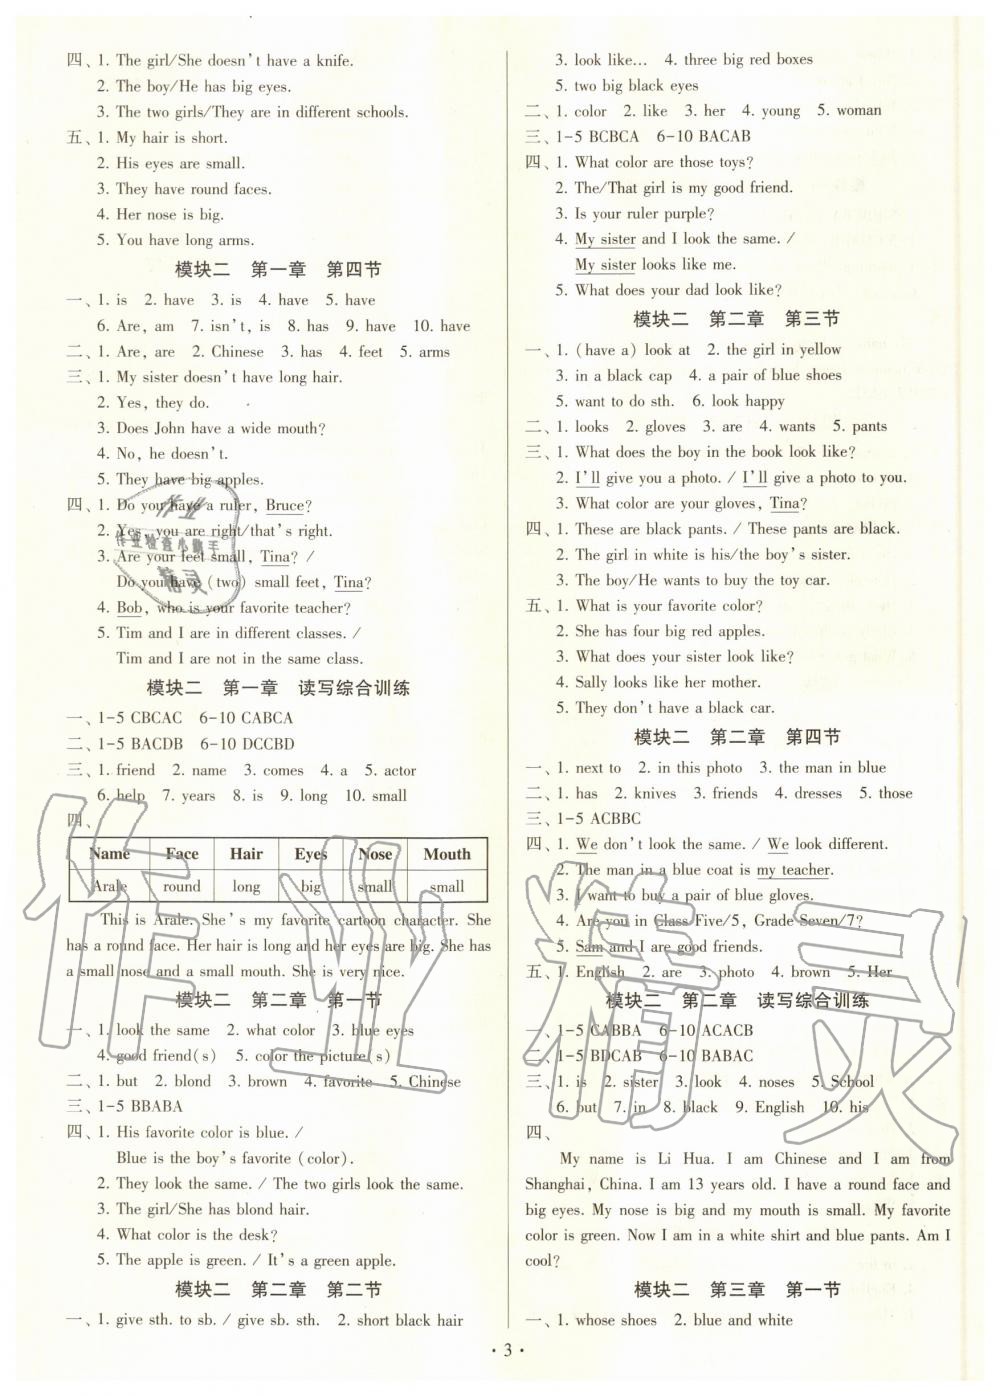 四、1. The girl/She doesn't have a knife.
2. The boy/He has big eyes.
3. The two girls/They are in different schools.
五、1. My hair is short.
2. His eyes are small.
3. They have round faces.
4. Her nose is big.
5. You have long arms.
模块二 第一章 第四节
一、1. is 2. have 3. is 4. have 5. have
6. Are, am 7. isn't, is 8. has 9. have 10. have
二、1. Are, are 2. Chinese 3. has 4. feet 5. arms
三、1. My sister doesn't have long hair.
2. Yes, they do.
3. Does John have a wide mouth?
4. No, he doesn't.
5. They have big apples.
四、1. Do you have a ruler, Bruce?
2. Yes, you are right/that's right.
3. Are your feet small, Tina? /
Do you have (two) small feet, Tina?
4. Bob, who is your favorite teacher?
5. Tim and I are in different classes. /
Tim and I are not in the same class.
模块二 第一章 读写综合训练
一、1-5 CBCAC 6-10 CABCA
二、1-5 BACDB 6-10 DCCBD
三、1. friend 2. name 3. comes 4. a 5. actor
6. help 7. years 8. is 9. long 10. small
四、
Name Face Hair Eyes Nose Mouth
Arale round long big small small
This is Arale. She's my favorite cartoon character. She
has a round face. Her hair is long and her eyes are big. She has
a small nose and a small mouth. She is very nice.
模块二 第二章 第一节
一、1. look the same 2. what color 3. blue eyes
4. good friend(s) 5. color the picture(s)
二、1. but 2. blond 3. brown 4. favorite 5. Chinese
三、1-5 BBABA
四、1. His favorite color is blue. /
Blue is the boy's favorite (color).
2. They look the same. / The two girls look the same.
3. The girl/She has blond hair.
4. What color is the desk?
5. The apple is green. / It's a green apple.
模块二 第二章 第二节
一、1. give sth. to sb. / give sb. sth. 2. short black hair
3. look like… 4. three big red boxes
5. two big black eyes
二、1. color 2. like 3. her 4. young 5. woman
三、1-5 BCBCA 6-10 BACAB
四、1. What color are those toys?
2. The/That girl is my good friend.
3. Is your ruler purple?
4. My sister and I look the same. /
My sister looks like me.
5. What does your dad look like?
模块二 第二章 第三节
一、1. (have a) look at 2. the girl in yellow
3. in a black cap 4. a pair of blue shoes
5. want to do sth. 6. look happy
二、1. looks 2. gloves 3. are 4. wants 5. pants
三、1. What does the boy in the book look like?
2. I'll give you a photo. / I'll give a photo to you.
3. What color are your gloves, Tina?
四、1. These are black pants. / These pants are black.
2. The girl in white is his/the boy's sister.
3. The boy/He wants to buy the toy car.
五、1. What is your favorite color?
2. She has four big red apples.
3. What does your sister look like?
4. Sally looks like her mother.
5. They don't have a black car.
模块二 第二章 第四节
一、1. next to 2. in this photo 3. the man in blue
二、1. has 2. knives 3. friends 4. dresses 5. those
三、1-5 ACBBC
四、1. We don't look the same. / We look different.
2. The man in a blue coat is my teacher.
3. I want to buy a pair of blue gloves.
4. Are you in Class Five/5, Grade Seven/7?
5. Sam and I are good friends.
五、1. English 2. are 3. photo 4. brown 5. Her
模块二 第二章 读写综合训练
一、1-5 CABBA 6-10 ACACB
二、1-5 BDCAB 6-10 BABAC
三、1. is 2. sister 3. look 4. noses 5. School
6. but 7. in 8. black 9. English 10. his
四、
My name is Li Hua. I am Chinese and I am from
Shanghai, China. I am 13 years old. I have a round face and
big eyes. My nose is big and my mouth is small. My favorite
color is green. Now I am in a white shirt and blue pants. Am I
cool?
模块二 第三章 第一节
一、1. whose shoes 2. blue and white
· 3 ·
作业精灵
作业
作业检查小助手
精灵